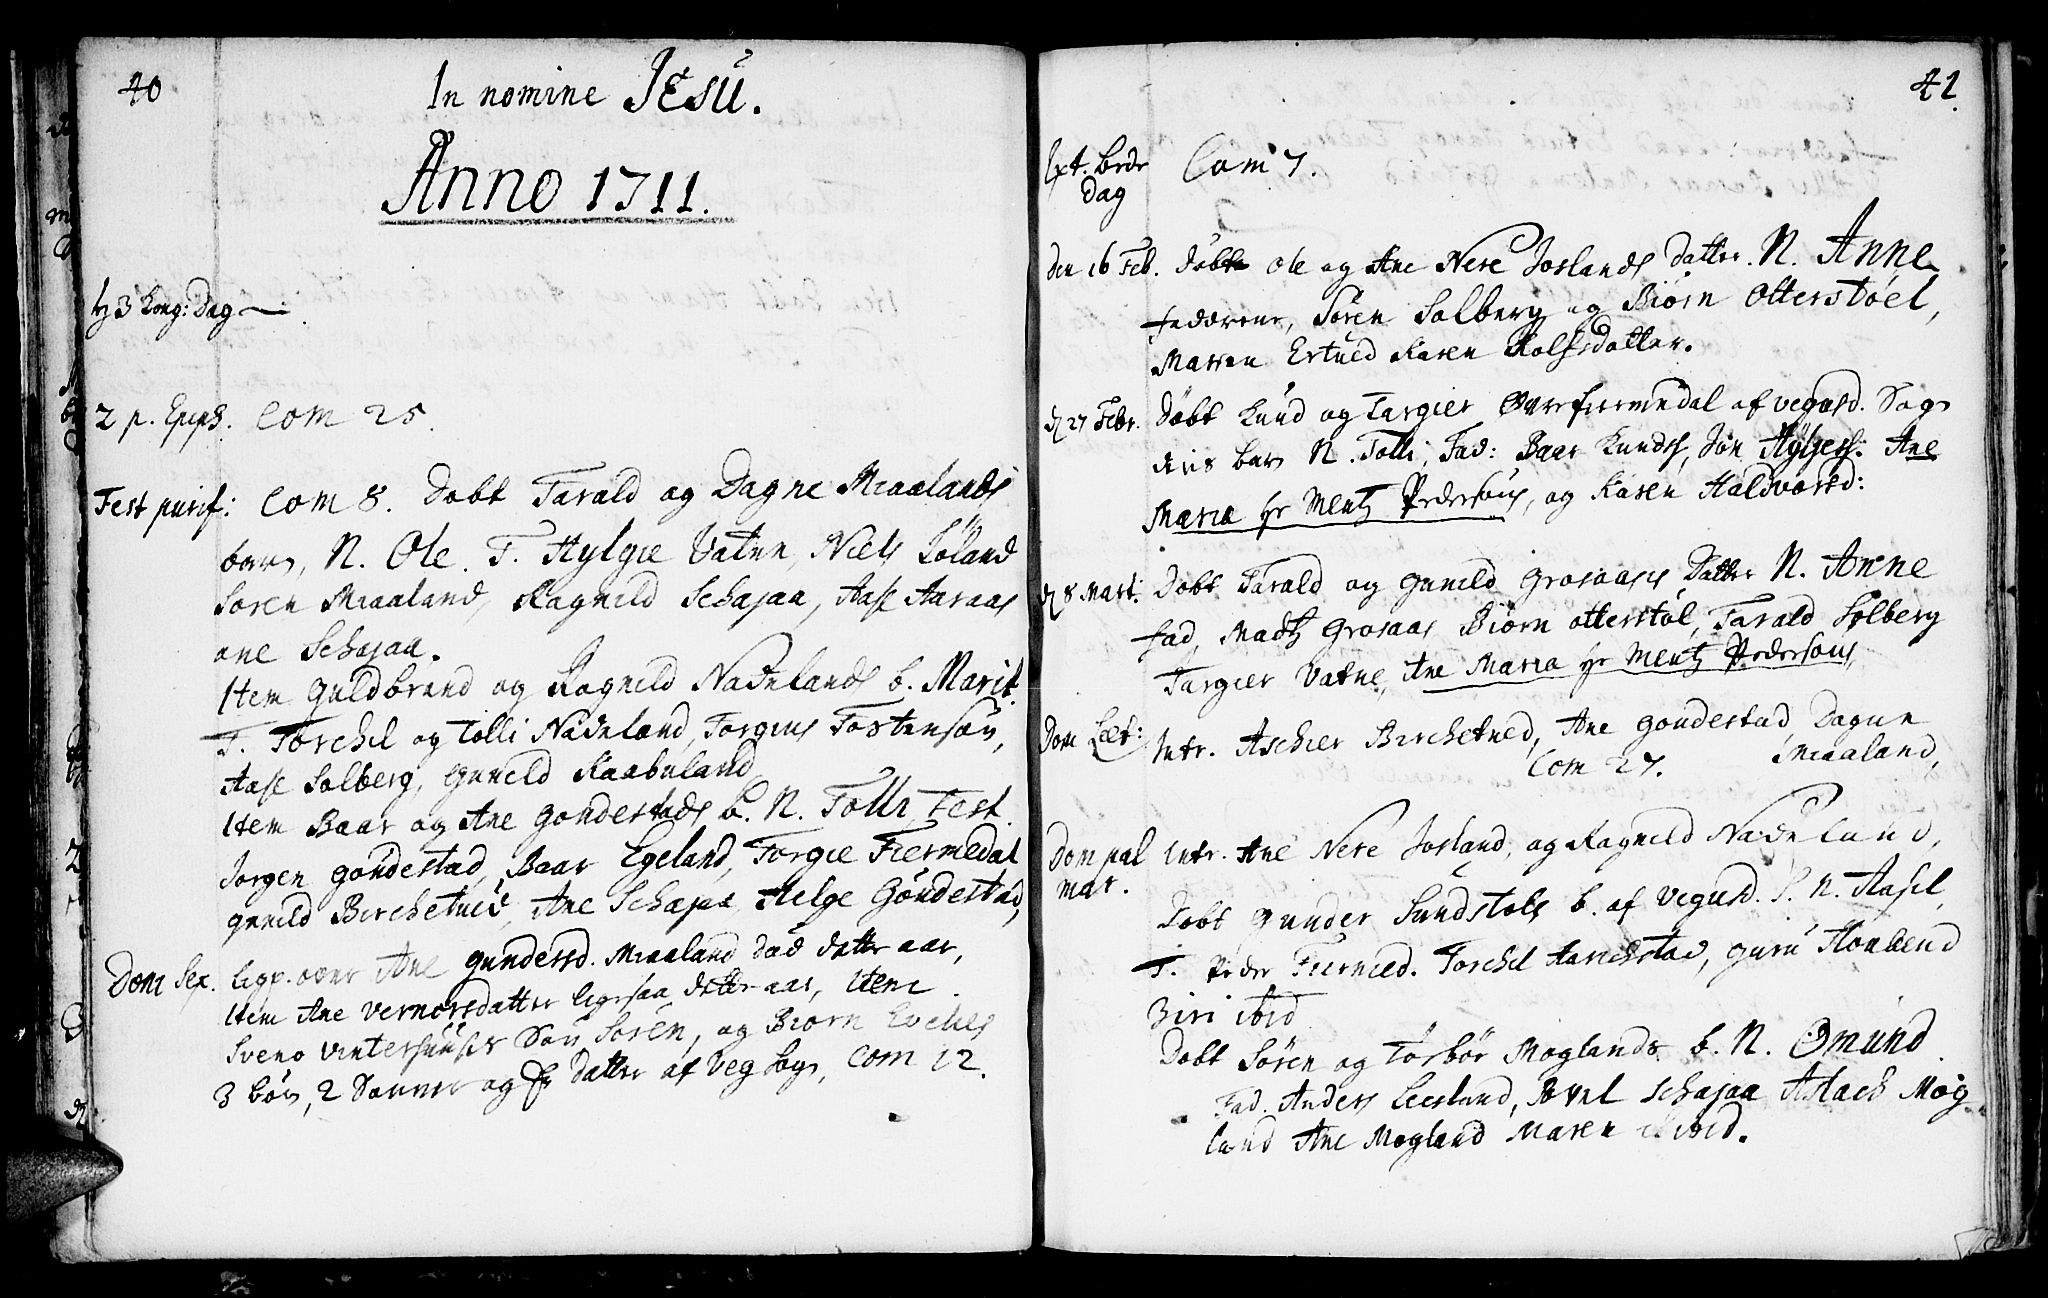 40
In nomine JEsu.
Anno 1711.
H 3 Kong: Dag
2 p. Epiph. Com 25.
Fest purif: Com 8. Döbt Tarald og Dagne Miaalands
barn, N. Ole. T. Hylgie Vatne, Niels Söland
Sören Miaaland, Ragnild Schajaa, Aase Aaraas
ane Schajaa.
Item Guldbrand og Ragnild Nadelands b. Marit.
T. Torchel og Tolli Nadeland, Torgius Tostensön,
Aase Solberg, Gunild Raabuland
Item Baar og Ane Gondestads b. N. Tolli, Test.
Jorgen Gondestad, Baar Egeland, Torgie Fiermedal
Gunild Berchetved, Ane Schajaa Helge Göndestad,
Dom Sex. ligp. over Ane Gundersd. Miaaland död dette aar,
Item Ane Vernorsdatter dette aar, Item
Sveno Vintershuuses Sön Sören, og Biörn Evches
3 börn, 2 Sönner og Datter af Veg Sogn, Com 12.
41.
Ext. bede Com 7.
Dag
Den 16 Feb. döbte Ole og Ane Nere Joslands datter. N. Anne
fadderne, Sören Solberg og Biörn Otterstöel,
Marren Ertved Karen Rolfsdatter.
d 27 Febr. Döbt Knud og Targier Øvre fiermedal af vegusd. Sog
dens barn N. Tolli, Fad: Baar Knuds, Jon Hylges: Ane
Maria Hr Mentz Pedersöns, og Karen Haldvorsd:
d 8 Mart: Döbt Tarald og Gunild Grosaases Datter N. Anne
fad, Madtz Grosaas Biörn otterstöl, Tarald Solberg
Targier Vatne, Ane Maria Hr Mentz Pedersöns,
Dom Læt: Intr. Aschier Berchetved, Ane Gondestad, Dagne
Com 27. Miaaland,
Dom pal Intr. Ane Nere Josland, og Ragnild Nadeland,
mar.
Döbt Gunder Sundstöls b. af Vegusd. S. N. Aasel,
T. Peder Fiermed. Torchel Aarichstad, Guru Haabend
Biri ibid
Döbt Sören og Torbör Moglands b. N. Omund.
Fad. Anders Leesland, Povel Schajaa Aslach Mog
land Ane Mogland Maren ibid.